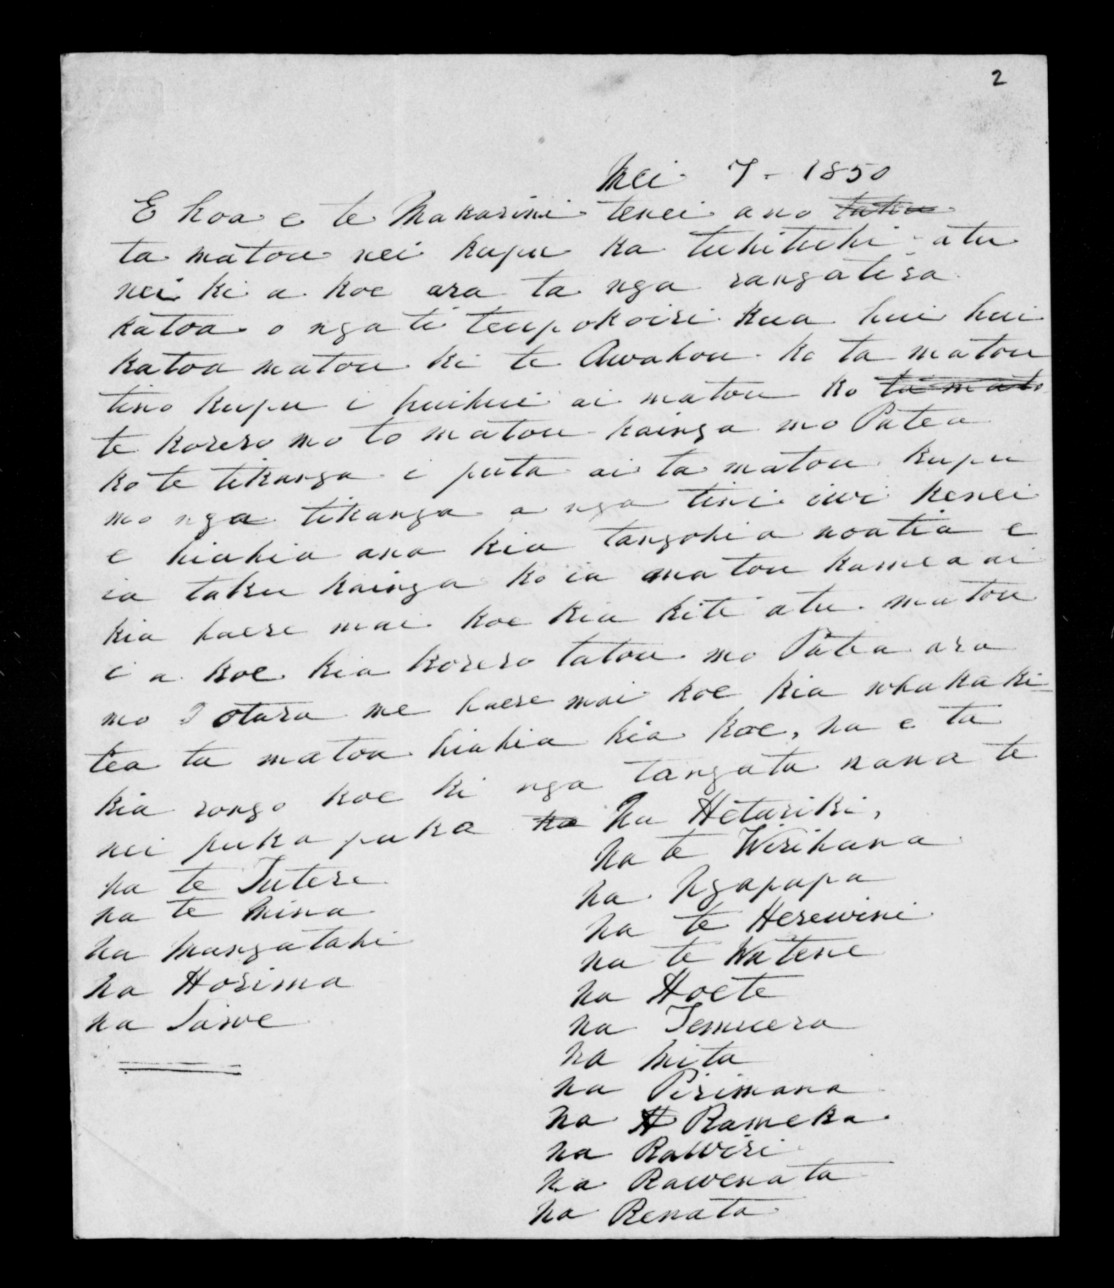 2
Mei 7 - 1850
E hoa e te Makarini tenei ano
ta matou nei kupu ka tuhituhi atu
nei ki a koe ara ta nga rangatira
katoa o ngati teupokoiri kua hui hui
katoa matou ki te Awahou ko ta matou
tino kupu i huihui ai matou ko ta mato
te korero mo to matou kainga mo Patea
ko te tikanga i puta ai ta matou kupu
mo nga tikanga a nga tini iwi kenei
e hiahia ana kia tangohia noatia e
ia taku kainga koia matou ka mea ai
kia haere mai koe kia kite atu matou
i a koe kia korero tatou mo Patea ara
mo Totara me haere mai koe kia whakaki-
tea ta matou hiahia kia koe, na e ta
kia rongo koe ki nga tangata nana te
nei puka puka na Na Hetariki,
na te Wirihana
na Ngapapa
na te Herewini
na te Watene
na Hoete
na Temuera
na Mita
na Pirimana
na H Rameka
na Rawiri
na Rawenata
na Renata
na te Tutere
na te Mina
na Mangatahi
na Horima
na